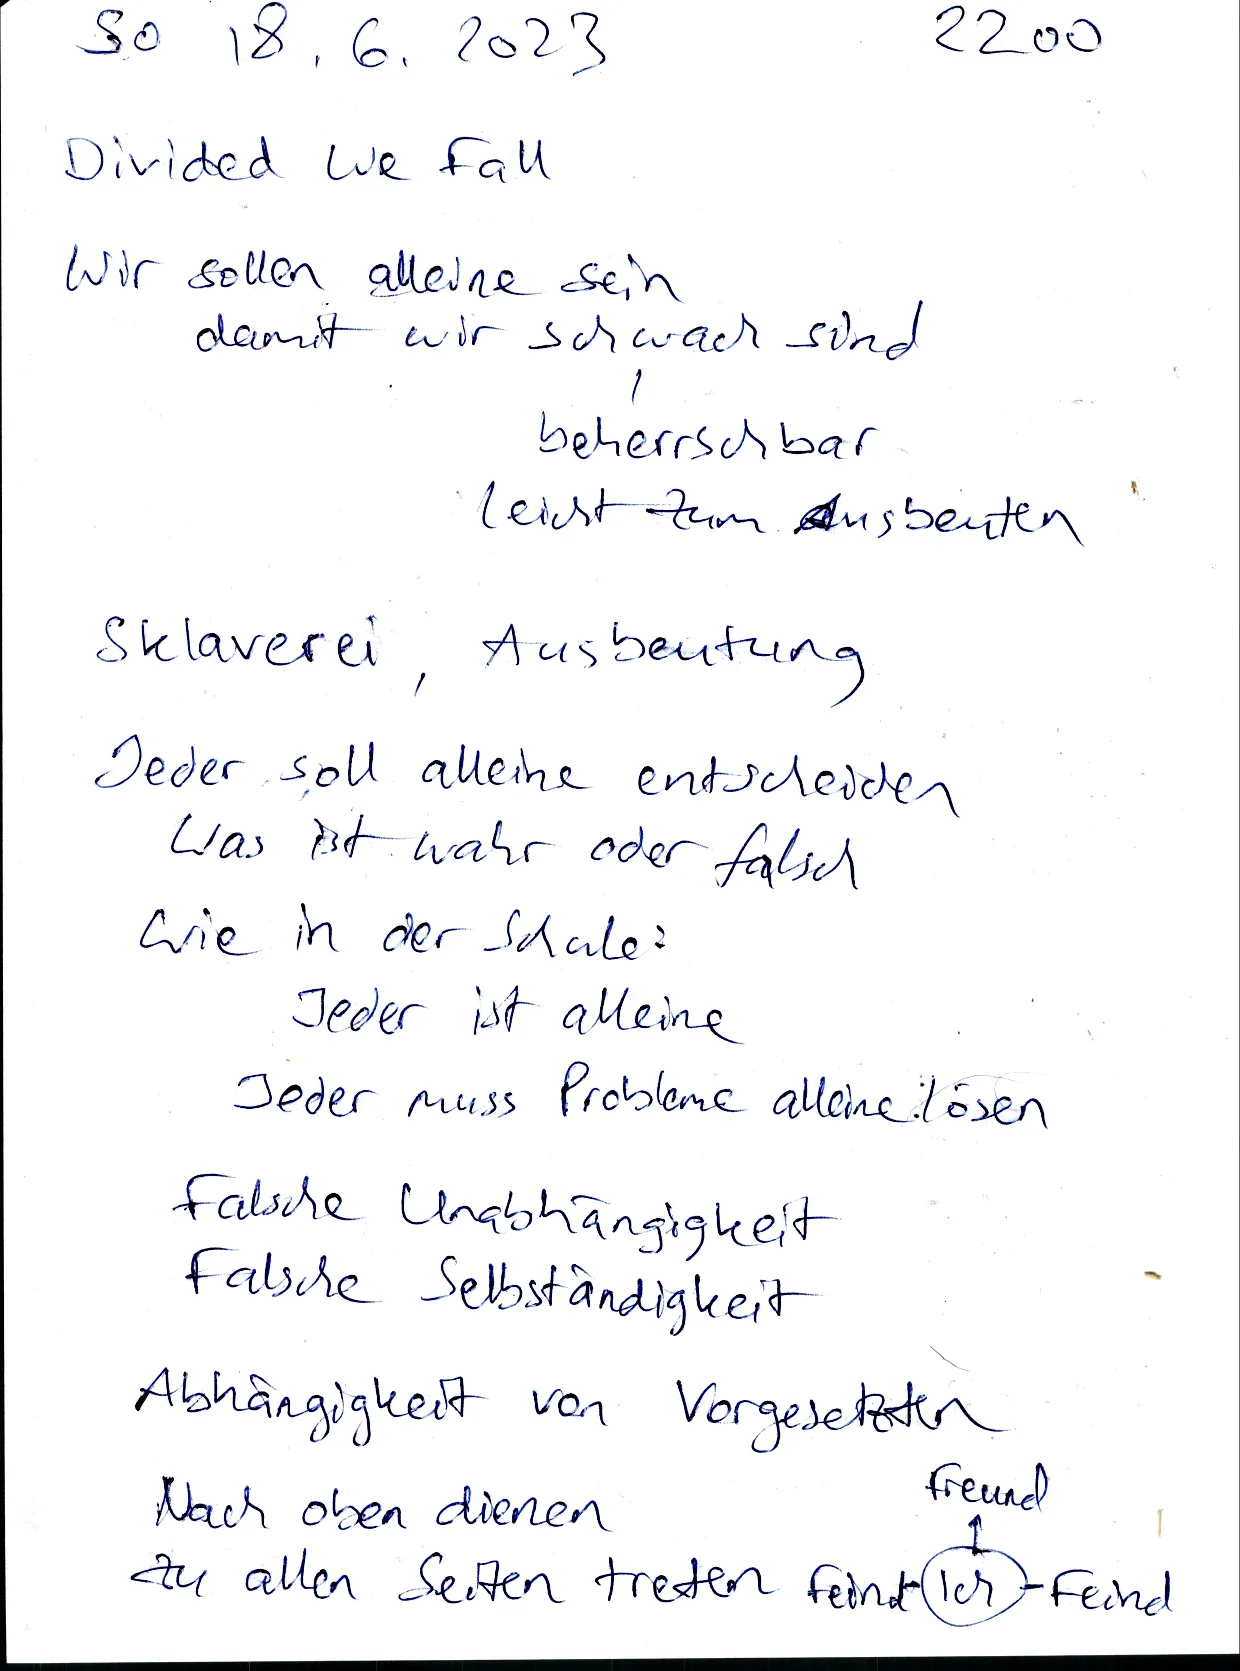 So 18.6.2023 2200
Divided We Fall
Wir sollen alleine sein
damit wir schwach sind
beherrschbar
leicht zum Ausbeuten
Sklaverei, Ausbeutung
Jeder soll alleine entscheiden
Was ist wahr oder falsch
Wie in der Schule:
Jeder ist alleine
Jeder muss Probleme alleine lösen
Falsche Unabhängigkeit
Falsche Selbständigkeit
Abhängigkeit von Vorgesetzten
Freund
Nach oben dienen
Zu allen Seiten treten Feind - Ich - Feind